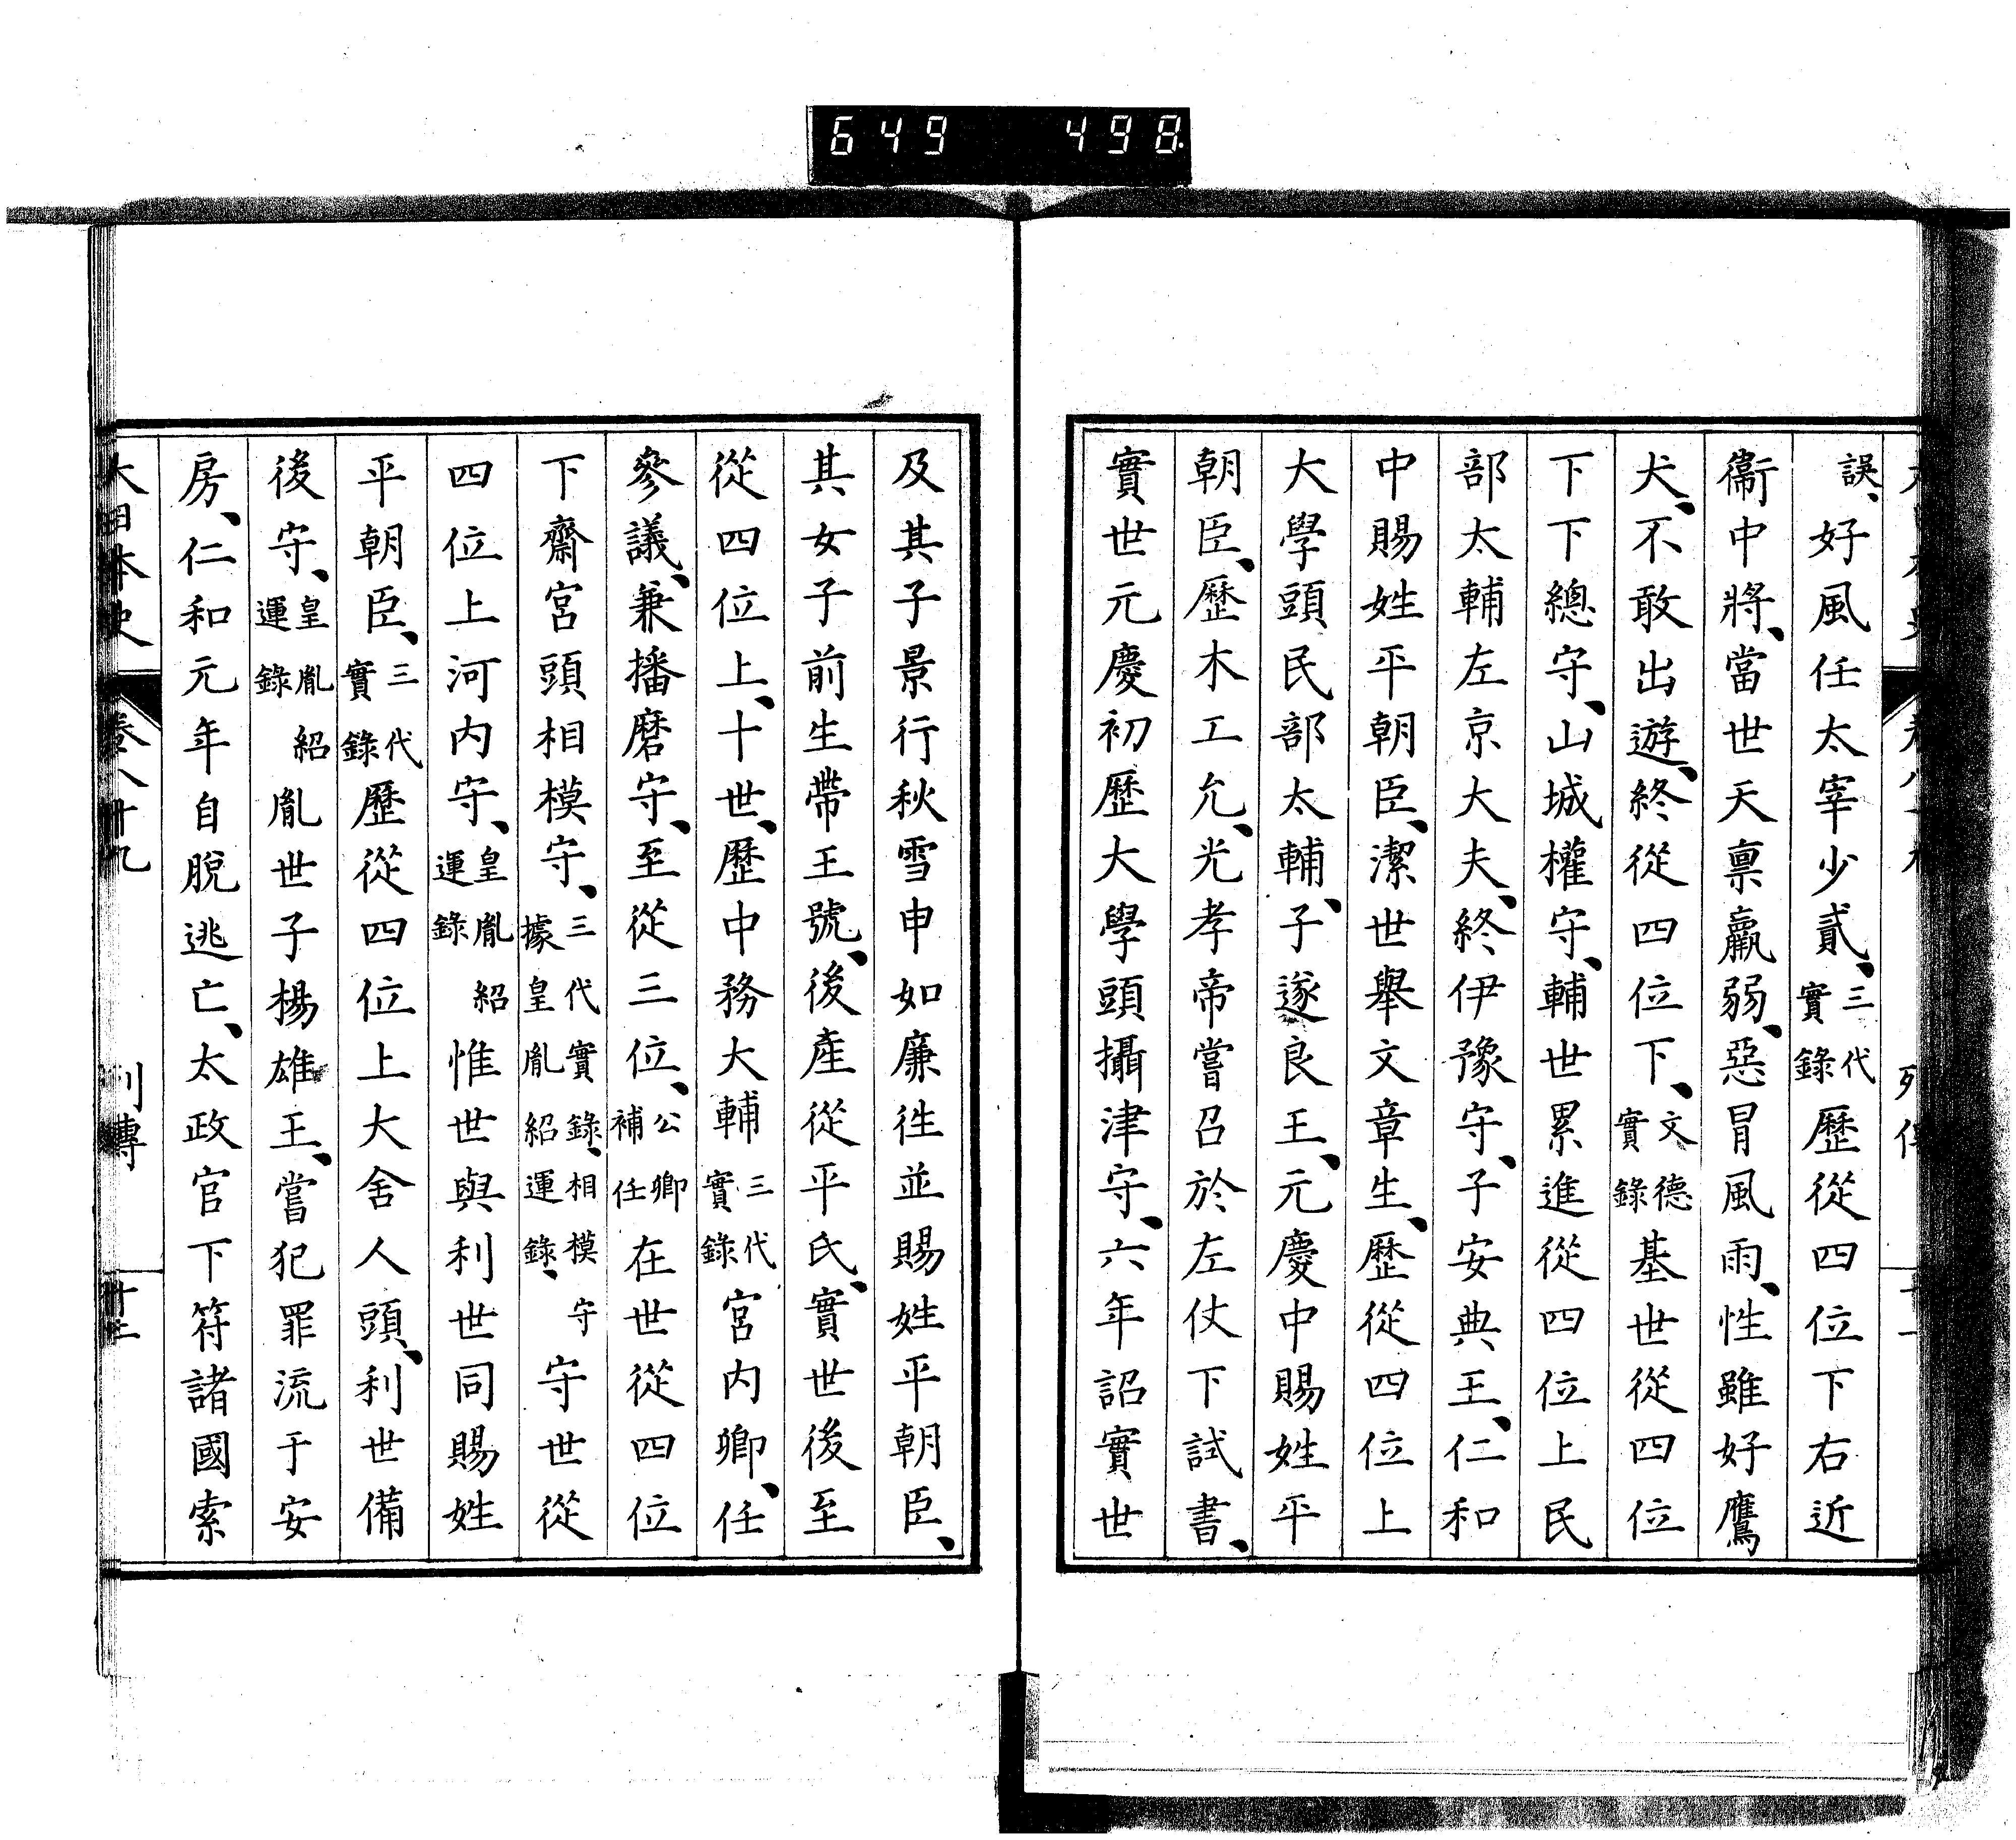 649 498
誤、好風任太宰少貳、三代實錄歷從四位下右近
衞中將、當世天稟羸弱、惡冒風雨、性雖好鷹
犬、不敢出遊、終從四位下、文德實錄基世從四位
下下總守、山城權守、輔世累進從四位上民
部太輔左京大夫、終伊豫守、子安典王、仁和
中賜姓平朝臣、潔世舉文章生、歷從四位上
大學頭民部太輔、子遂良王、元慶中賜姓平
朝臣、歷木工允、光孝帝嘗召於左仗下試書、
實世元慶初歷大學頭攝津守、六年詔實世
及其子景行秋雪申如廉徃並賜姓平朝臣、
其女子前生帶王號、後產從平氏、實世後至
從四位上、十世、歷中務大輔三代實錄宮内卿、任
參議、兼播磨守、至從三位、公卿補任在世從四位
下齋宮頭相模守、三代實錄、相模守據皇胤紹運錄、守世從
四位上河内守、皇胤紹運錄惟世與利世同賜姓
平朝臣、三代實錄歷從四位上大舍人頭、利世備
後守、皇胤紹運錄胤世子楊雄王、嘗犯罪流于安
房、仁和元年自脫逃亡、太政官下符諸國索
大日本史 卷八十九 列傳